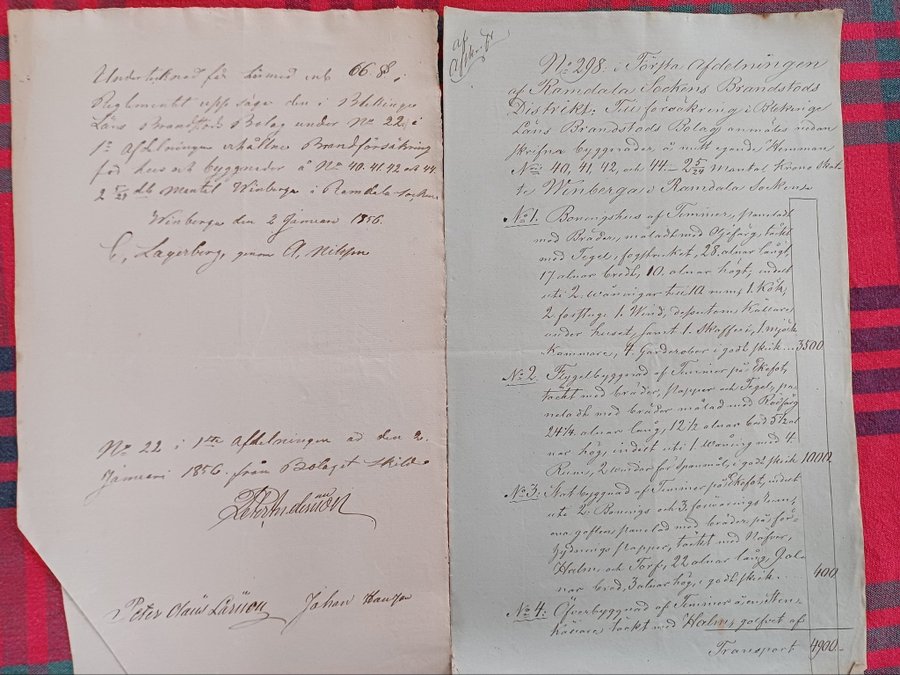 Undertecknad får härmed enl. 66 § i
Reglementet uppsäga den i Blekinge
Läns Brandstods Bolag under No 22. i
1a Afdelningen erhållne Brandförsäkring
för hus och byggnader å No 40. 41. 42 och 44.
2 5/29 dels Mantal Winberga i Ramdala Socken
Winberga den 2 Januari 1856.
C. Lagerberg, genom A. Nilsson
No 22 i 1sta Afdelningen är den 2.
Januari 1856. från Bolaget skild.
Peter Andersson
Peter Olaus Larsson Johan Hansson
af
No 298. i Första Afdelningen
af Ramdala Sockens Brandstods
Distrikt: Till försäkring i Blekinge
Läns Brandstods Bolag anmäles nedan
skrefna byggnader, å mitt egande, Hemman
No 40, 41, 42, och 44. 2 5/29 Mantal Krono Skat
te Winberga i Ramdala Socken
No 1. Boningshus af Timmer, paneladt
med Bräder, måladt med Oljefärg, täckt
med Tegel, 28. alnar långt,
17 alnar bredt, 10. alnar högt, indelt
uti 2. wåningar till 10 rum, 1. Kök,
2 förstuge 1. Wind, dessutom Källare
under huset, samt 1. Skafferi, 1 mjölk
Kammare, 4. Garderober i godt skik 3500
No 2. Flygelbyggnad af Timmer på Ekefot,
täckt med bräder, näfver och Tegel, pa-
neladt med bräder målad med Rödfärg
24 1/4. alnar lång, 12 1/2 alnar bred 5 1/2 al
nar hög, indelt uti 1. wåning med 4
Rum, 2 windar för Spannmål, i godt skik 1000.
No 3. Stat byggnad af Timmer på Ekefot, indelt
uti 2. Bonings och 3. förwarings rum,
ena gafveln, panelad med bräder på
täckt med Näfver,
Halm, och Torf, 22 alnar lång, 9 al
nar bred, 3 alnar hög, i godt skik 400
No 4. Öfverbyggnad af Timmer å en Sten-
Källare täckt med Halm, golfvet af
Transport 4900